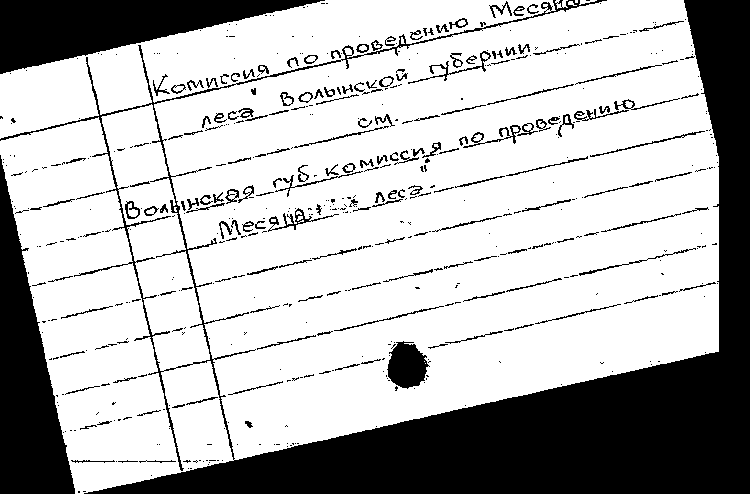 Комиссия по проведению „Месяца
леса" Волынской губернии
см.
Волынская губ. комиссия по проведению
„Месяца леса".